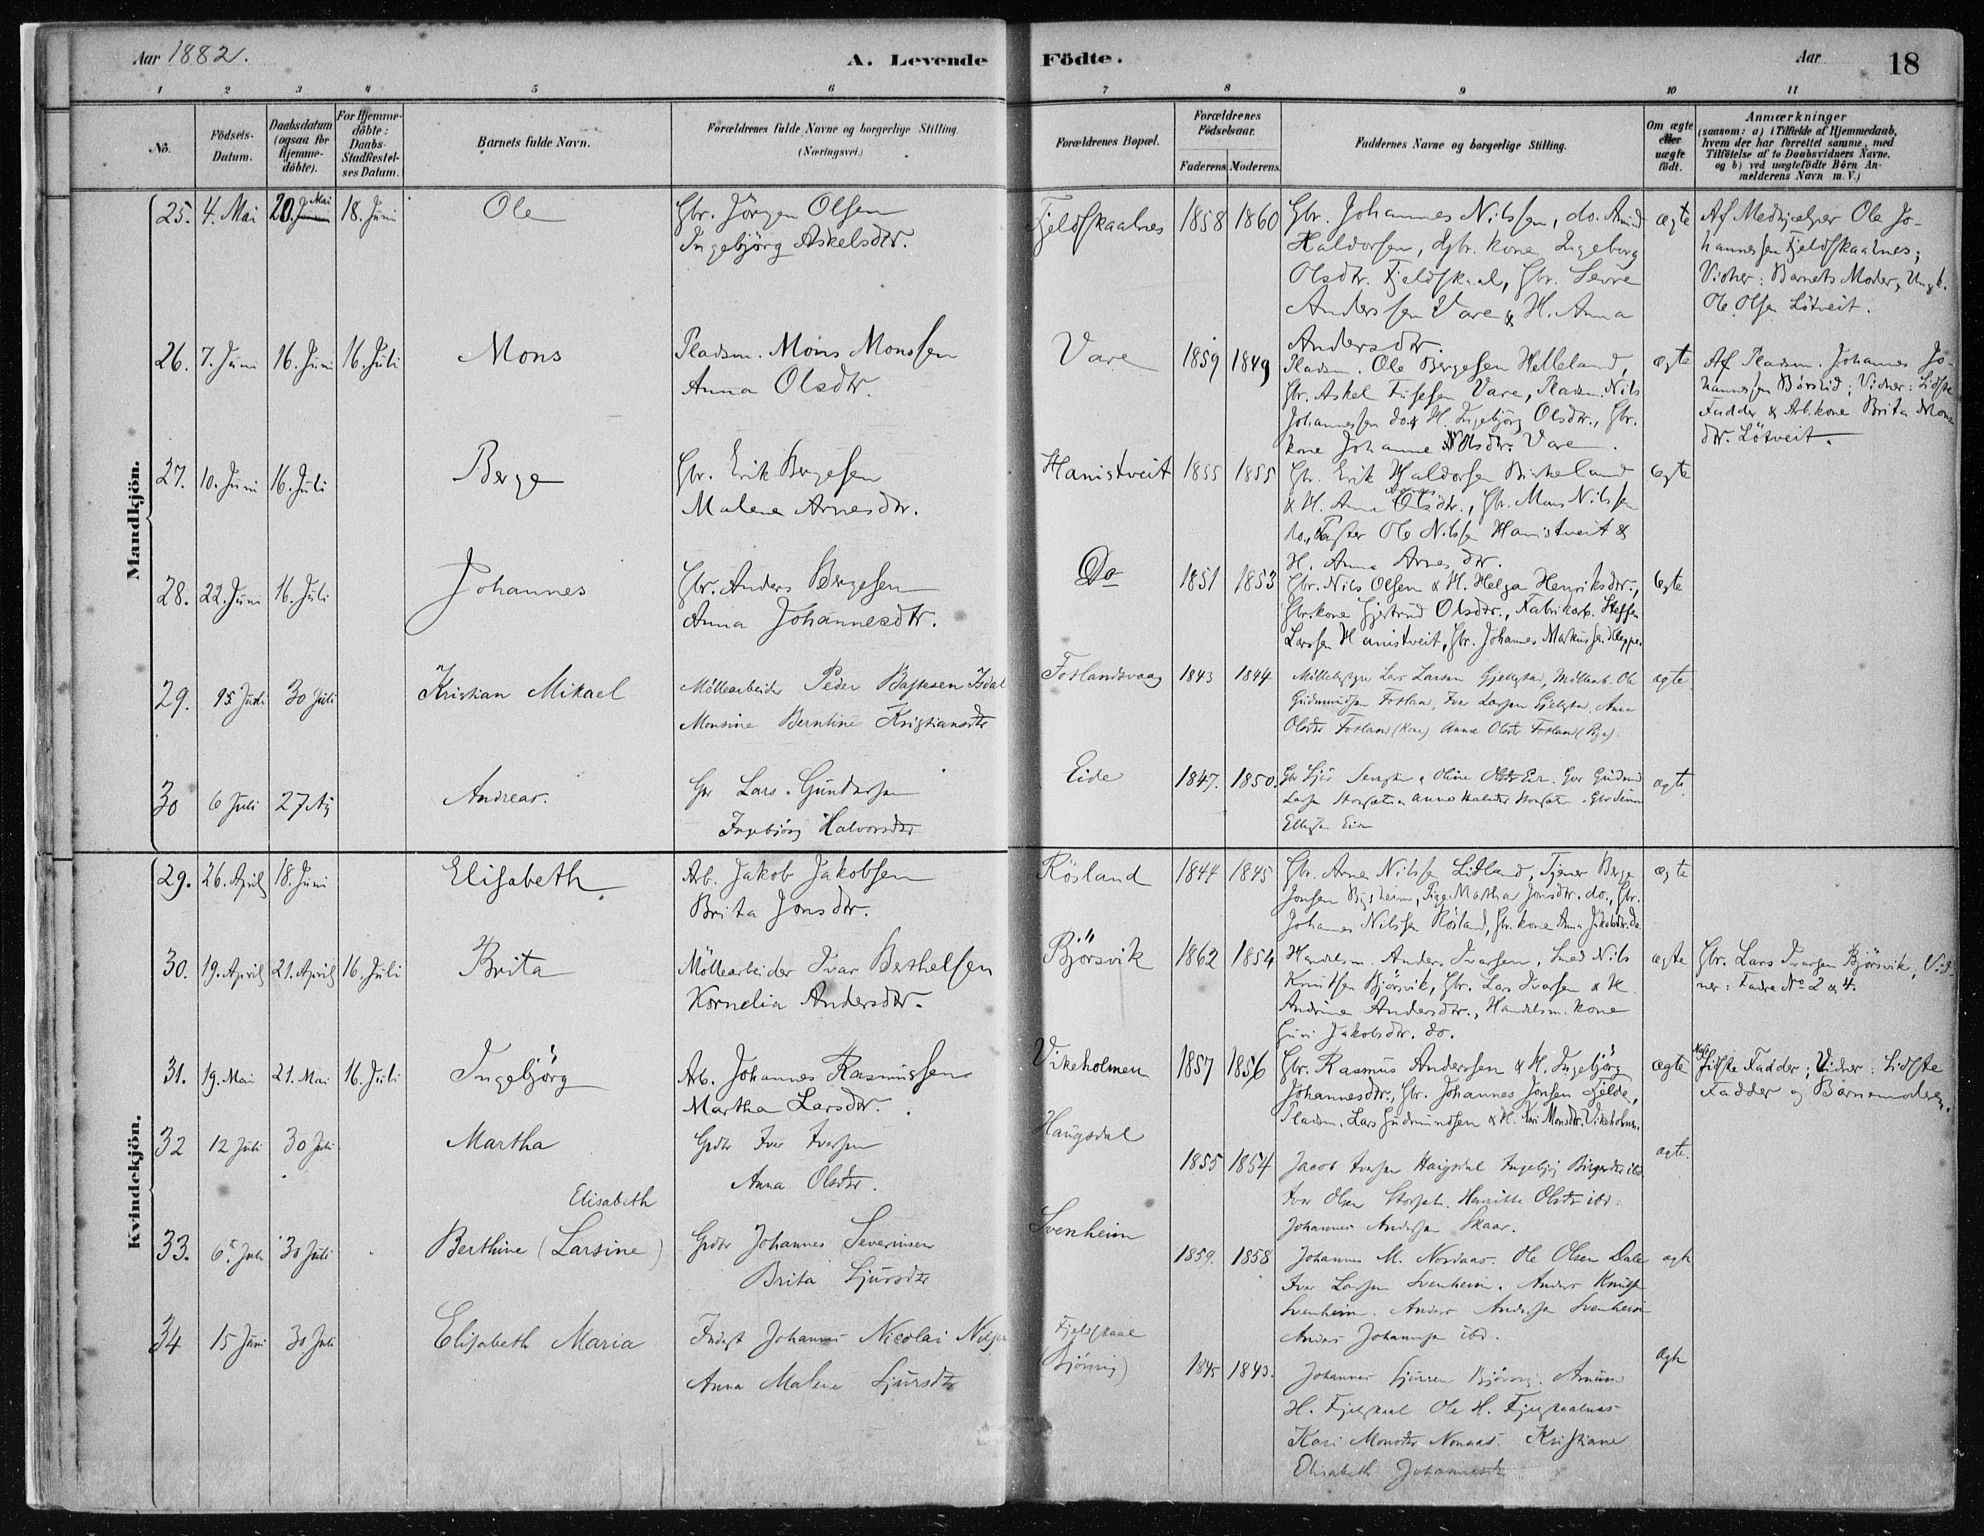 Aar 1882.
A. Levende Födte.
Aar 18
1 2 3 4 5 6 7 8 9 10 11
No. Födsels-Datum. Daabsdatum (ogsaa for Hjemmedöbte). For Hjemmedöbte: Daabs-Stadfestelses Datum. Barnets fulde Navn. Forældrenes fulde Navne og borgerlige Stilling. (Næringsvei.) Forældrenes Bopæl. Forældrenes Födselsaar. Faderens. Moderens. Faddernes Navne og borgerlige Stilling. Om ægte eller uægte födt. Anmærkninger (saasom: a) i Tilfælde af Hjemmedaab, hvem der har forrettet samme, med Tilföielse af to Daabsvidners Navne, og b) ved uægtefödte Börn Anmelderens Navn m. V.)
Mandkjön.
25. 4. Mai 20. Mai 18. Juni Ole Gbr. Jörgen Olsen Fjeldskaalnes 1858 1860 Gbr. Johannes Nilssen, do. Amund ægte Af Medhjælper Ole Jo-
Ingebjörg Askelsdtr. Haldorsen, Gbr. kone Ingeborg hannessen Fjeldskaalnes;
Olsdtr. Fjeldskaal, Gbr. Sevre Vidner: Barnets Moder, Ungk.
Anderssen Vare & H. Anna Ole Olsen Lötveit.
Andersdtr.
26. 7. Juni 16. Juni 16. Juli Mons Pladsm. Mons Monssen Vare 1859 1849 Pladsm. Ole Bergesen Helleland, ægte Af Pladsm. Johannes Jo-
Anna Olsdtr. Gbr. Askel Vare, Pladsm. Nils hannessen; Vidner: Sidste
Johannessen do. & H. Ingebjörg Olsdtr., Gbr. Fadder & Arb.kone Brita Mons
kone Johanne Nilsdtr. Vare. dtr. Lötveit.
27. 10. Juni 16. Juli Berge Gbr. Erik Bergesen Hanistveit 1855 1855 Gbr. Erik Haldorsen Birkeland ægte
Malena Arnesdtr. & H. Anna Olsdtr., Gbr. Mons Nilssen
do., Ole Nilssen Hanistveit &
H. Anna Arnesdtr.
28. 22. Juni 16. Juli Johannes Gbr. Anders Bergesen Do 1851 1853 Gbr. Nils Olsen & H. Helga Henriksdtr., ægte
Anna Johannesdtr. Gbr.kone Gjertrud Olsdtr., Fabrikarb. Steffen
Larssen Hanistveit, Gbr. Johannes Markussen Kleppe.
29. 15 Juli 30 Juli Kristian Mikael Möllearbeider Peder Fotlandsvaag 1843 1844 Lars Larsen, Möllearb. Ole ægte
Monsine Berntine Kristiansdtr Gudmundsen Fotland, Iver Larssen. Anna
Olsdtr Fotland (Kone) Anna Olsdtr Fotland (Pige).
30 6 Juli 27 Aug Andreas. Gbr Lars Gundersen Eide 1847. 1850. ægte.
Ingebjörg Halvorsdtr
Kvindekjön.
29. 26. April 18. Juni Elisabeth Arb. Jakob Jakobsen Rösland 1844 1845 Gbr. Arne Nilssen Lidland, Tjener Berge ægte
Brita Jonsdtr. Jonsen, Pige Martha Jonsdtr. do., Gbr.
Johannes Nilssen Rösland, Gbr. kone Anna Jakobsdtr. do.
30. 19. April 21. April 16. Juli Brita Möllearbeider Ivar Berthelsen Björsvik 1862 1854 Handelsm. Anders Ivarsen, Smed Nils ægte Gbr. Lars Ivarsen Björsvik, Vid-
Kornelia Andersdtr. Knutsen Björsvik, Gbr. Lars Ivarsen & H. ner: Fadre No 2 & 4.
Andrine Andersdtr., Handelsm. kone
Guri Jakobsdtr. do.
31. 19. Mai 21. Mai 16. Juli Ingebjörg Arb. Johannes Rasmussen Vikeholmen 1857 1856 Gbr. Rasmus Anderssen & H. Ingebjörg ægte Sidste Fadder; Vidner: Sidste
Martha Larsdtr. Johannesdtr., Gbr. Johannes Jonsen Fjelde, Fadder og Barnemoderen.
Pladsm. Lars Gudmundsen & H. Kari Monsdtr. Vikeholmen.
32 12 Juli 30 Juli Martha Iver Iversen Haugsdal 1855 1854 Jacob Iversen Haugsdal Ingebjörg ibd ægte.
Anna Olsdtr. Iver Olsen. Olsdtr ibd.
Johannes Andersen Skaar.
33. 6 Juli 30 Juli Elisabeth Berthine (Larsine) Johannes Severinsen Svenheim 1859. 1858 Johannes M. Nordaas. Ole Olsen Dale ægte
Brita Sjursdtr Iver Larsen Svenheim. Anders Knutsen
Svenheim. Anders Andersen Svenheim
Anders Johannesen ibd.
34 15 Juni 30 Juli Elisabeth Maria Inderst Johannes Nicolai Nilsen Fjeldskaal 1845 1843. Johannes Björsvig. Amund ægte
Anna Malene Sjursdtr (Björsvig) H. Fjeldskaal Ole H. Fjeldskaalnes
Kari Monsdtr. Kristiane
Elisabeth Johannesdtr